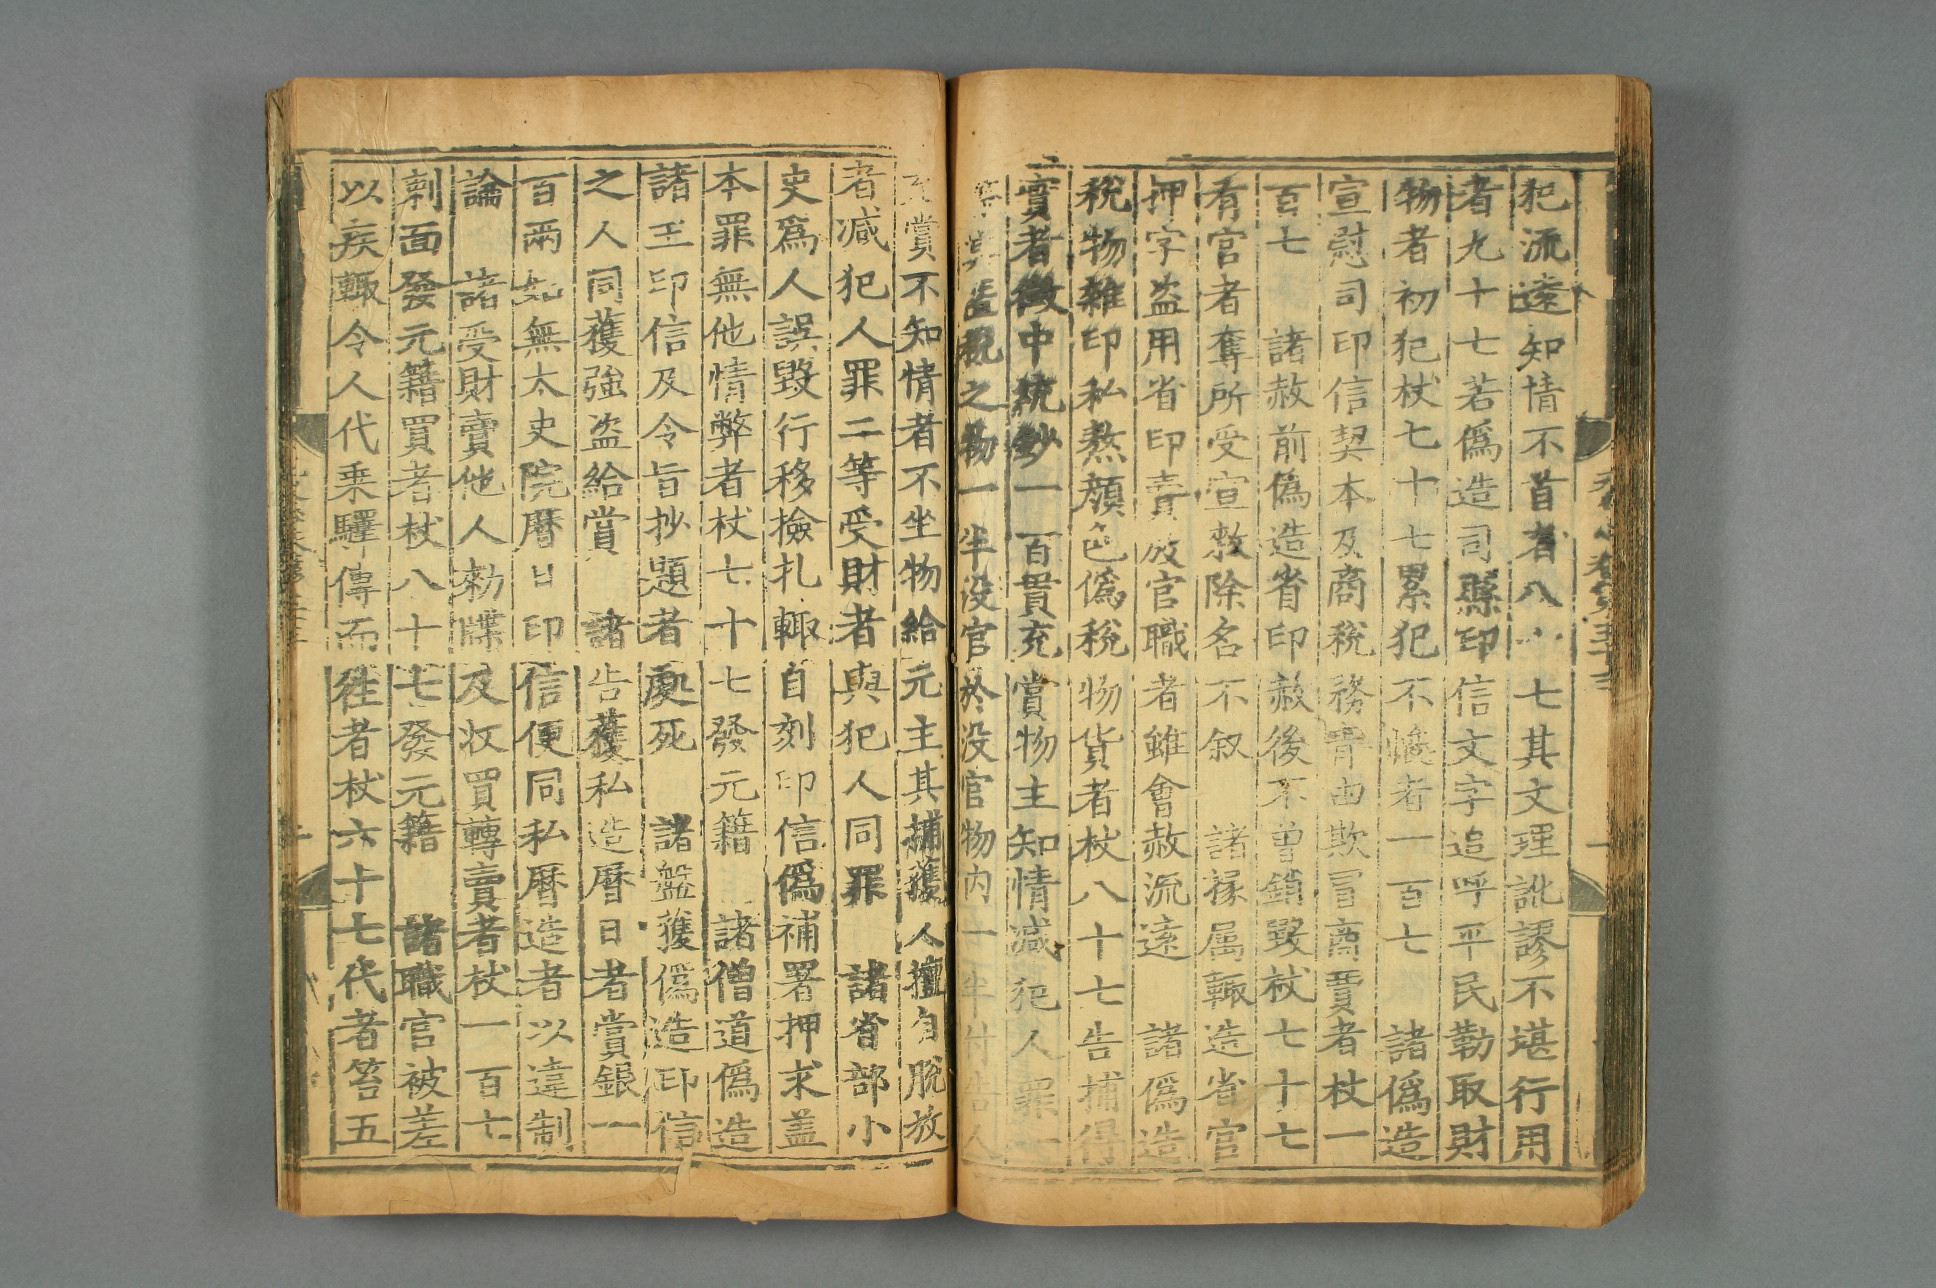 犯流遠知情不首者八十七其文理訛謬不堪行用
者九十七若僞造司縣印信文字追呼平民勒取財
物者初犯杖七十七累犯不悛者一百七 諸僞造
宣慰司印信契本及商稅務青由欺冒商賈者杖一
百七 諸赦前僞造省印赦後不曾銷毀杖七十七
有官者奪所受宣敕除名不叙 諸掾屬輒造省官
押字盗用省印賣放官職者雖會赦流遠 諸僞造
稅物雜印私熬顔色僞稅物貨者杖八十七告捕得
實者徵中統鈔一百貫充賞物主知情減犯人罪一
等其匿稅之物一半没官於没官物内一半付告人
充賞不知情者不坐物給元主其捕獲人擅自脱放
者減犯人罪二等受財者與犯人同罪 諸省部小
吏爲人誤毀行移檢扎輒自刻印信僞補署押求盖
本罪無他情弊者杖七十七發元籍 諸僧道僞造
諸王印信及令旨抄題者處死 諸盤獲僞造印信
之人同獲強盗給賞 諸告獲私造曆日者賞銀一
百兩如無太史院曆日印信便同私曆造者以違制
論 諸受財賣他人勑牒及收買轉賣者杖一百七
刺面發元籍買者杖八十七發元籍 諸職官被差
以疾輒令人代乘驛傳而徃者杖六十七代者笞五